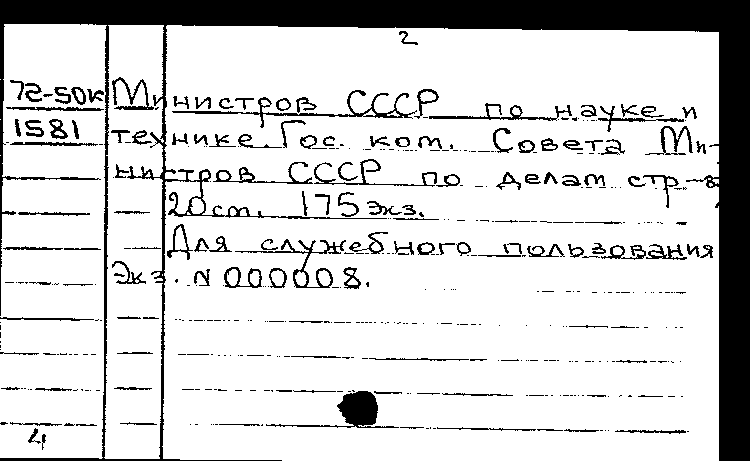 2
72-50к Министров СССР по науке и
1581 технике. Гос. ком. Совета Ми-
нистров СССР по делам стр-ва
20 см. 175 экз.
Для служебного пользования
Экз. N 000008.
4